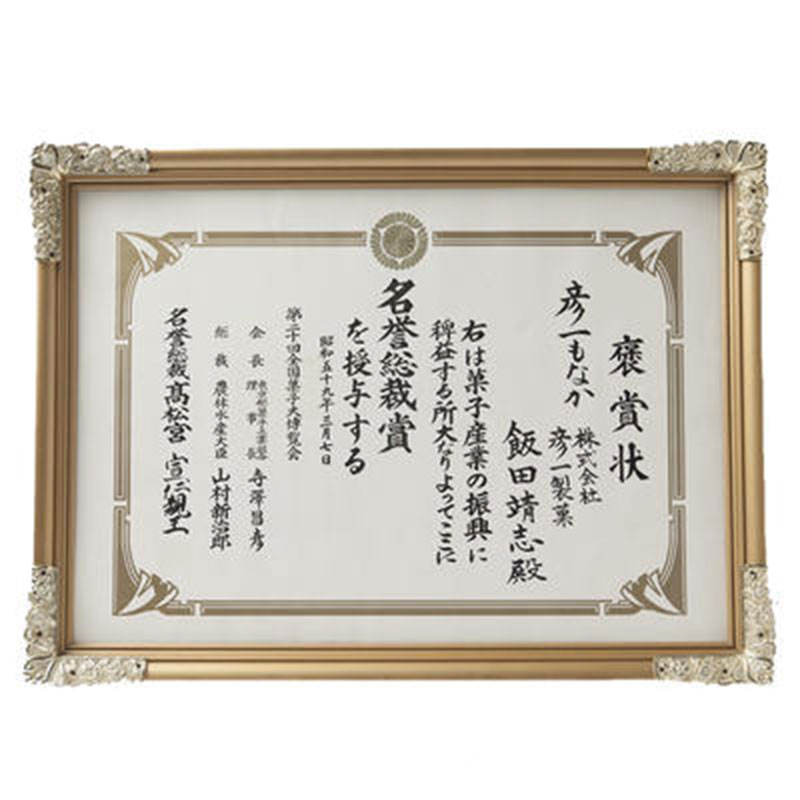 褒賞状
彦一もなか
株式会社
彦一製菓
飯田靖志殿
右は菓子産業の振興に
稗益する所大なりよってここに
名誉総裁賞
を授与する
昭和五十九年三月七日
第二十回全国菓子大博覧会
会長 理事長 寺澤昌彦
総裁 農林水産大臣 山村新治郎
名誉総裁高松宮 宣仁親王